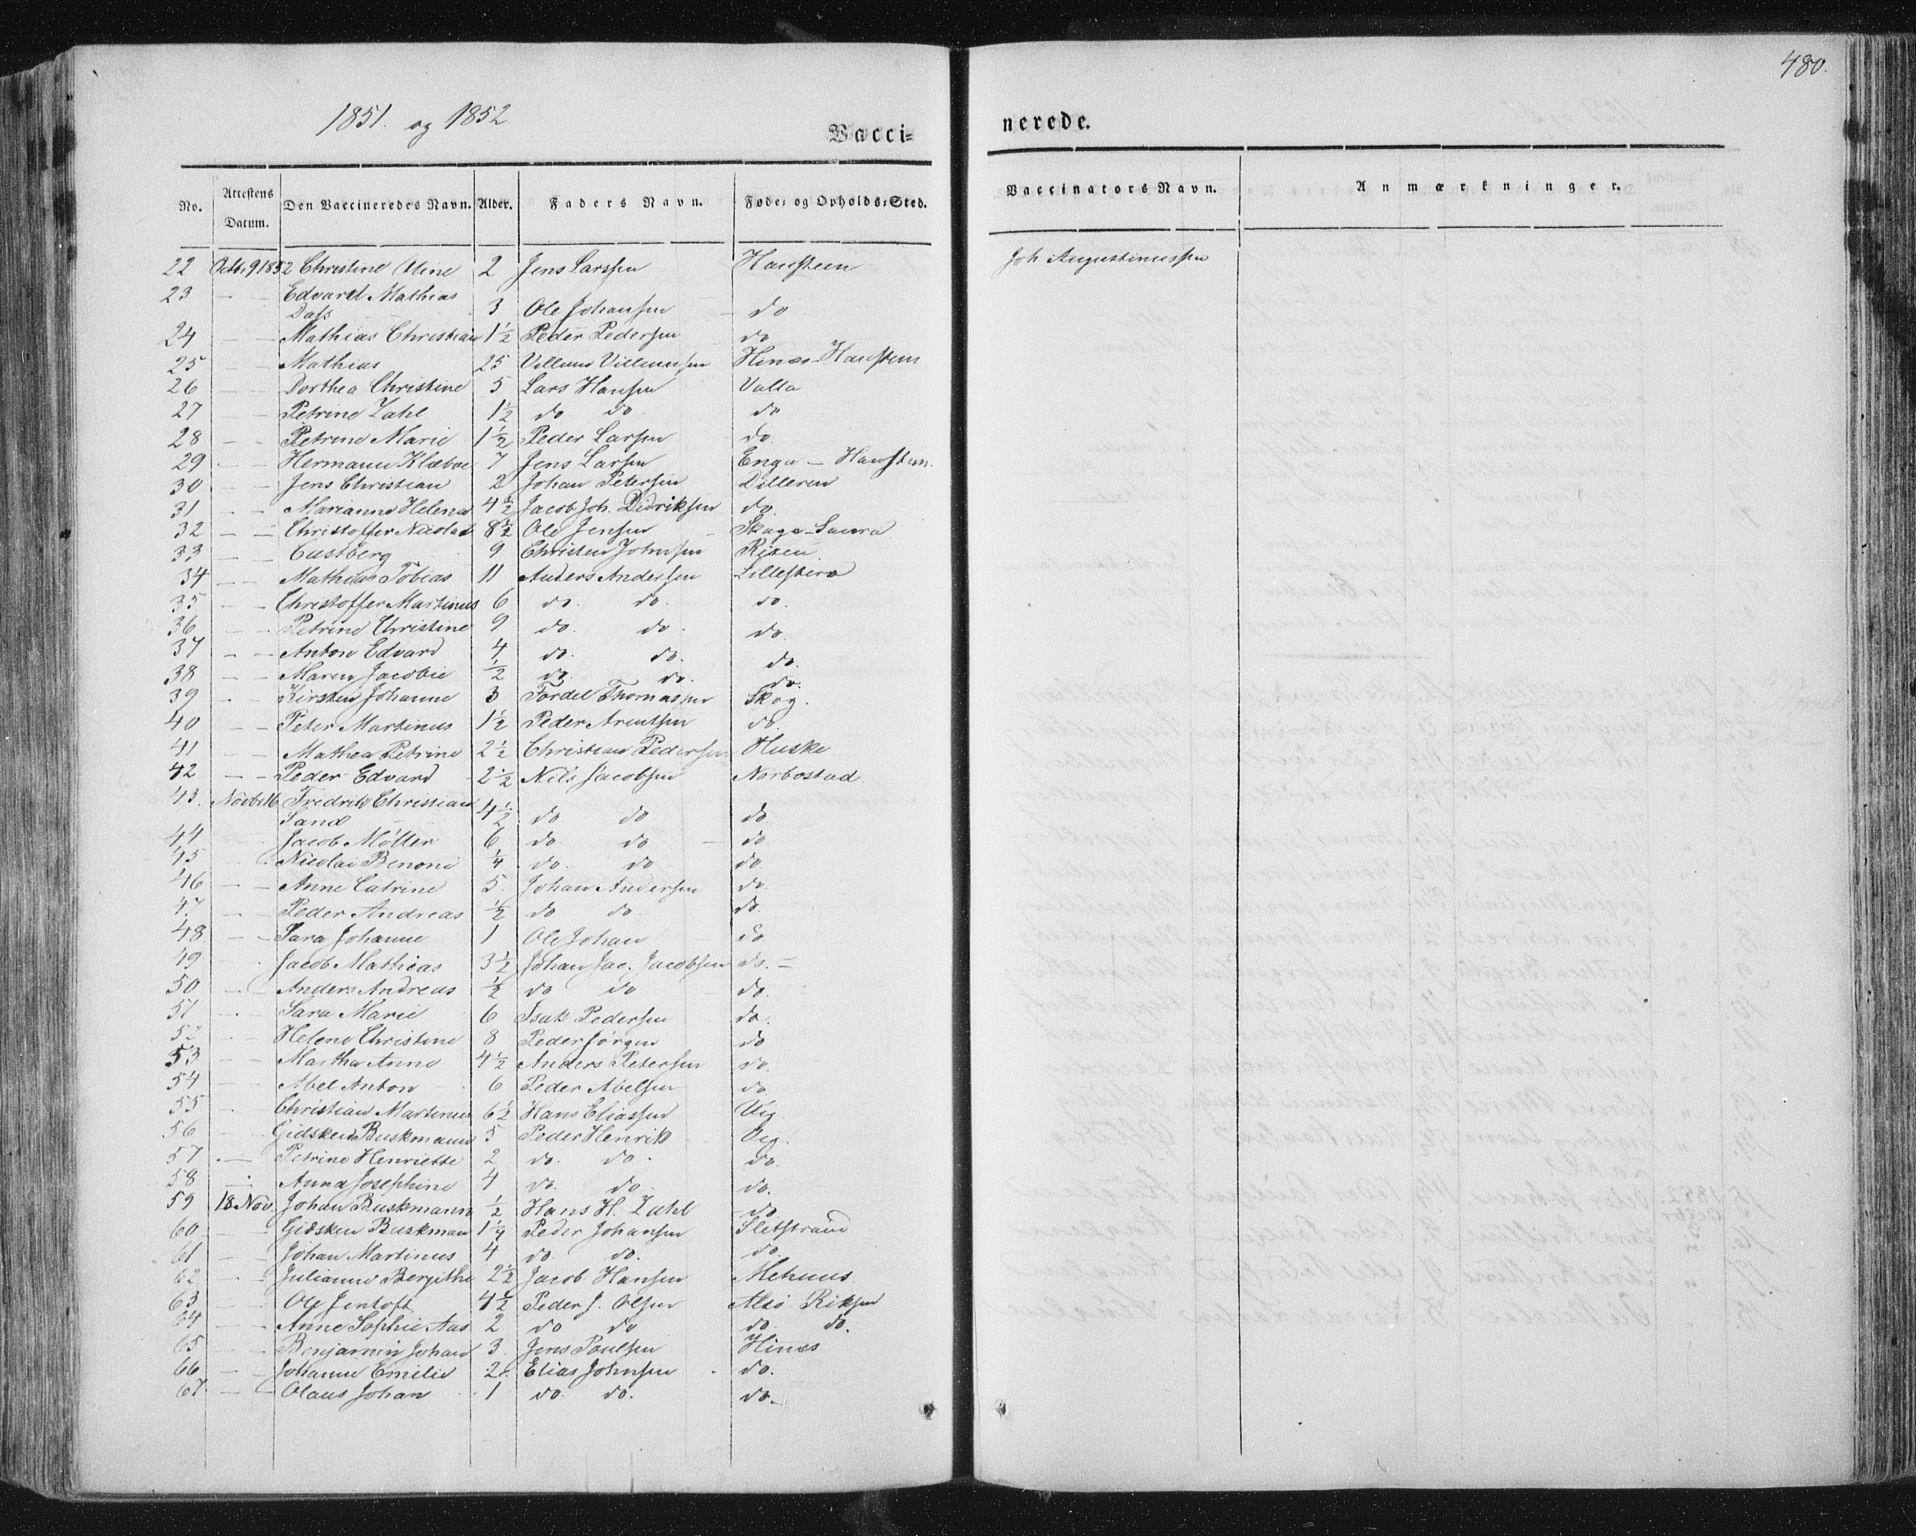 480.
1851. og 1852.
Vacci= nerede.
No. Attestens Datum. Den Vaccineredes Navn. Alder. Faders Navn. Føde= og Opholds=Sted. Vaccinators Navn. Anmærkninger.
22 Octb. 9 1852 Christine Oline 2 Jens Larssen Hansteen Joh Augustinussen
23 — — Edvard Mathias
Dass 3 Ole Johansen do
24 — — Mathias Christian 1½ Peder Pedersen do
25 — — Mathias 25 Villum Villumsen Hines-Hansteen
26 — — Dorthea Christine 5 Lars Hansen Valla
27 — — Petrine Zahl 1½ do do do
28 — — Petrine Marie 1½ Peder Larsen do.
29 — — Hermann Klæboe 7 Jens Larsen Enga — Hansteen.
30 — — Jens Christian 2 Johan Petersen Dilleren
31 — — Marianne Helena 4½ Jacob Joh. Didriksen do.
32 — — Christoffer Nicolai 8½ Ole Jensen Skaga-Saura
33 — — Castberg 9 Christen Johnsen Risen
34 — — Mathias Tobias 11 Anders Andersen Lillesterø
35 — — Christoffer Martinus 6 do. do. do.
36 — — Petrine Christine 9 do. do. do.
37 — — Anton Edvard 4 do. do. do.
38 — — Maren Jacobie ½ do. do. do.
39 — Kirsten Johanne 3 Tordel Thomassen Skog.
40 — — Peter Martinus 1½ Peder Arentsen do
41 — Mathea Petrine 2½ Christian Pedersen Huske
42 — — Peder Edvard 2½ Nils Jacobsen Norbostad
43. Novb. 16 Fredrik Christian
Sand 4½ do do do
44 — Jacob Møller 6 do. do — do
45 — Nicolai Benoni ¼ do. do do
46 — — Anne Catrine 5. Johan Andersen do.
47. — Peder Andreas ½ do do. do.
48 — — Sara Johanne 1 Ole Johan do
49 — Jacob Mathias 3½ Johan Jac. Jacobsen do. —
50 — Anders Andreas ½ do do do.
51 — Sara Marie 6 Isak Pedersen do.
52 — Helene Christine 8 Peder Jørgen do
53 — — Martha Anne 4½ Anders Petersen do.
54 — — Abel Anton 6 Peder Abelsen do
55 — Christian Martinus 6½ Hans Eliassen Vig
56 — Gidsken Buskmann 5 Peder Henrik Vig.
57 — — Petrine Henriette 2 do. do. do.
58 — Anna Josephine 4 do. do. do.
59 18 Nov. Johan Buskmann ½ Hans H. Zahl do
60 — Gidsken Buskman 1¼ Peder Johansen Sletstrand
61 — Johan Martinus 4 do. do. do.
62 — Julianne Bergithe 2½ Jacob Hansen Mehuus
63 — — Ole Jentoft 4½ Peder J. Olsen Alsø Riksen
64 — — Anne Sophie Aas 2 do do do do.
65 — — Benjamin Johan 3. Jens Poulsen Hines
66 — — Johanne Emilie 2. Elias Johnsen do.
67 — — Olaus Johan 1 do. do. do.